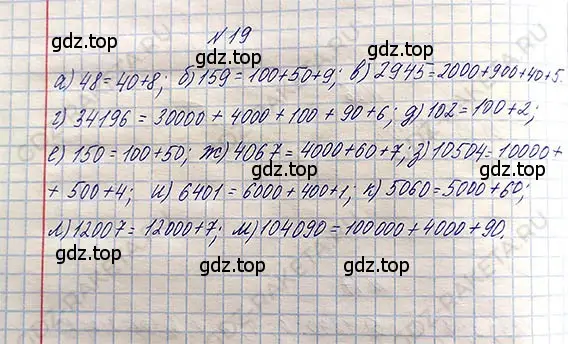 № 19
gdz.top gdz.top
а) 48 = 40+8; б) 159 = 100+50+9; в) 2945 = 2000+900+40+5.
gdz.top gdz.top
г) 34196 = 30000 + 4000 + 100 + 90 + 6; д) 102 = 100+2;
е) 150 = 100+50; ж) 4067 = 4000+60+7; з) 10504 = 10000+
gdz.top gdz.top
+ 500+4; и) 6401 = 6000+400+1; к) 5060 = 5000+60;
gdz.top gdz.top
л) 12007 = 12000+7; м) 104090 = 100000+4000+90.
gdz.top gdz.top gdz.top